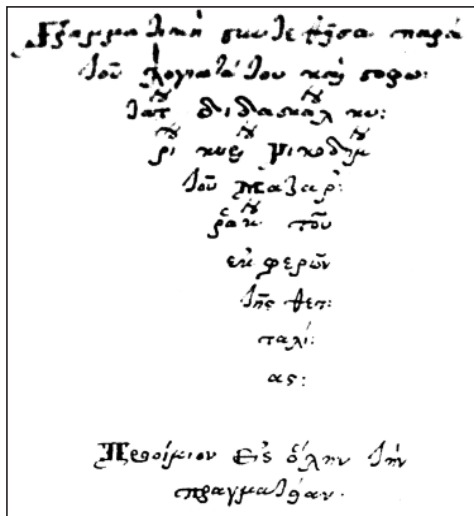 Γραμματικὴ συντεθῆσα παρὰ
τοῦ λογιωτάτου καὶ σοφω:
τάτου διδασκάλου κυ:
ρίου κυρίου Νικοδήμου
τοῦ Μαζαρ:
ράκου τοῦ
ἐκ φερῶν
τῆς θετ:
ταλί:
ας:
Προοίμιον εἰς ὅλην τὴν
πραγματείαν.